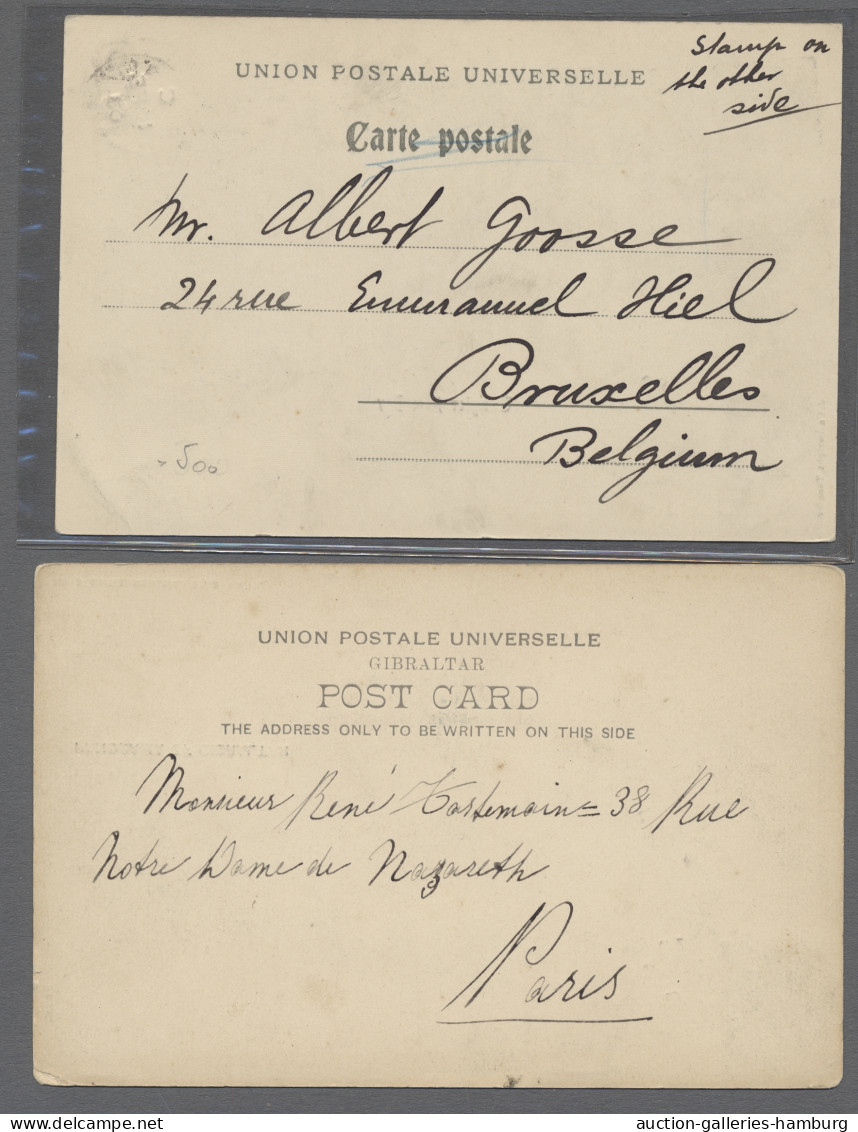 Stamp on
the other
side
UNION POSTALE UNIVERSELLE
Carte postale
Mr. Albert Goosse
24 rue Emmanuel Hiel
Bruxelles
Belgium
500
UNION POSTALE UNIVERSELLE
GIBRALTAR
POST CARD
THE ADDRESS ONLY TO BE WRITTEN ON THIS SIDE
Monsieur René 38 Rue
Notre Dame de Nazareth
Paris
auction-galleries-hamburg